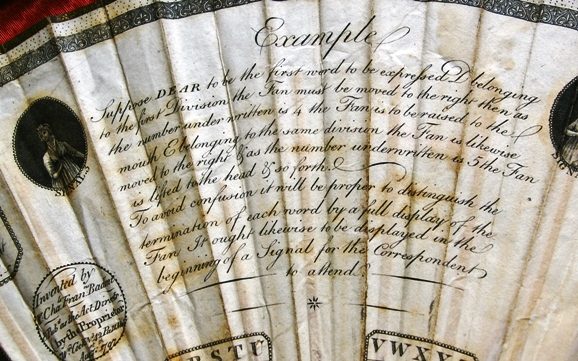 Example
Suppose DEAR to be the first word to be expressed D belonging
to the first Division the Fan must be moved to the right then as
the number underwritten is 4 the Fan is to be raised to the
mouth E belonging to the same division the Fan is likewise
moved to the right & as the number underwritten is 5 the Fan
is lifted to the head & so forth.
To avoid confusion it will be proper to distinguish the
termination of each word by a full display of the
Fan It ought likewise to be displayed in the
beginning of a Signal for the Correspondent
to attend.
Invented by
Chas Fran
as the Act Directs
by the Proprietor
RSTU
VWXY